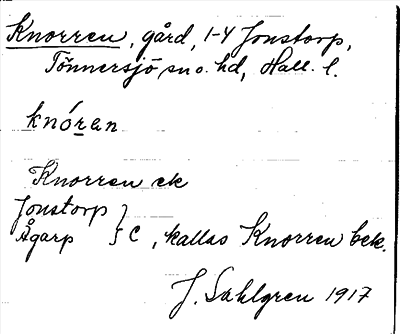 Knorren, gård, 1-4 Jonstorp,
Tönnersjö sn o. hd, Hall. l.
knóran
Knorren ek
Jonstorp
Ågarp } C, kallas Knorren bek.
J. Sahlgren 1917